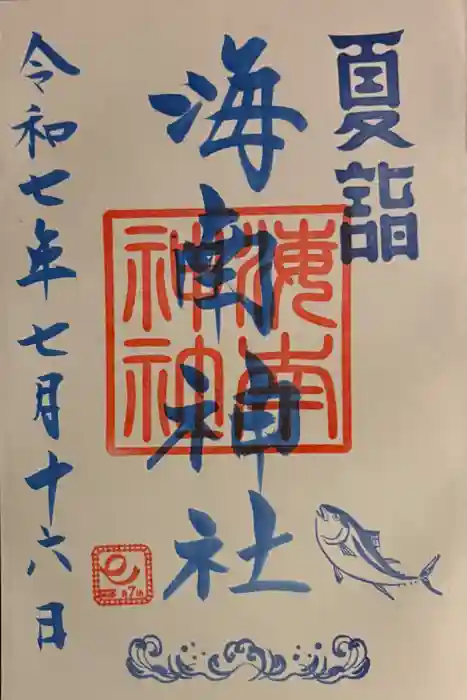 夏詣
海南神社
海南
神社
令和七年七月十六日